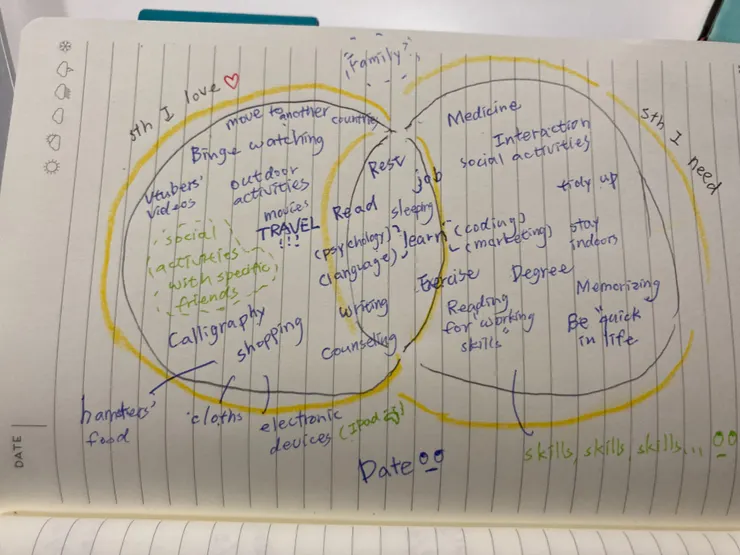 Family
sth I love
move to another
countries
Binge watching
Vtubers'
videos
outdoor
activities
movies
TRAVEL
!!!
social
activities
with specific
friends
Calligraphy
shopping
hamsters'
food
cloths
electronic
devices (Ipad)
Rest
job
Read
sleeping
(psychology)
(language)
learn
(coding)
(marketing)
Exercise
writing
Counseling
sth I need
Medicine
Interaction
social activities
tidy up
stay
indoors
Degree
Memorizing
Reading
for "working
skills"
Be "quick
in life
skills, skills, skills...
Date
DATE